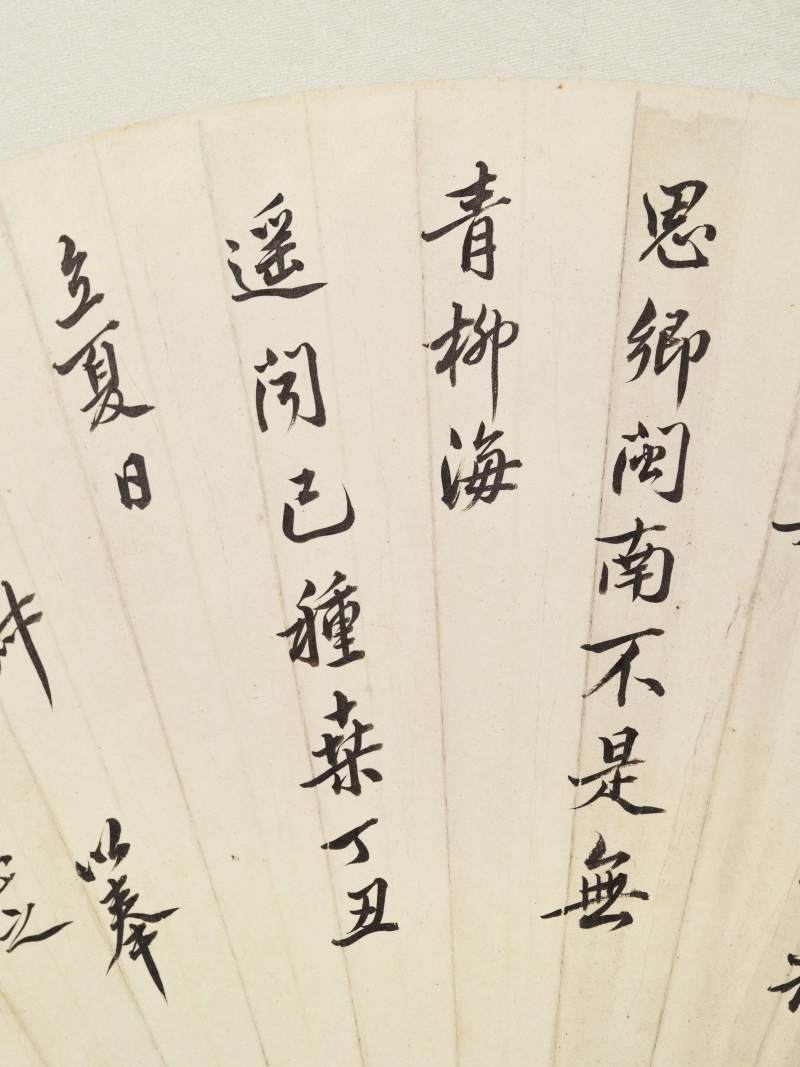 思鄉閩南不是無
青柳海
遥聞已種桒丁丑
立夏日
以奉